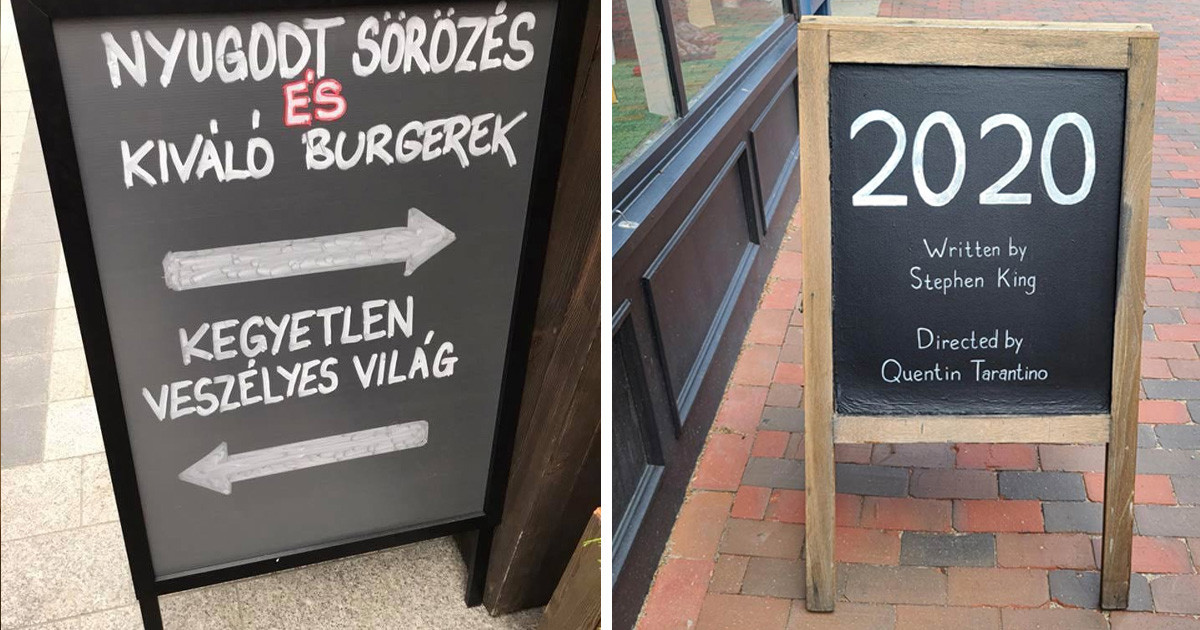 NYUGODT SÖRÖZÉS
ÉS
KIVÁLÓ BURGEREK
KEGYETLEN,
VESZÉLYES VILÁG
2020
Written by
Stephen King
Directed by
Quentin Tarantino